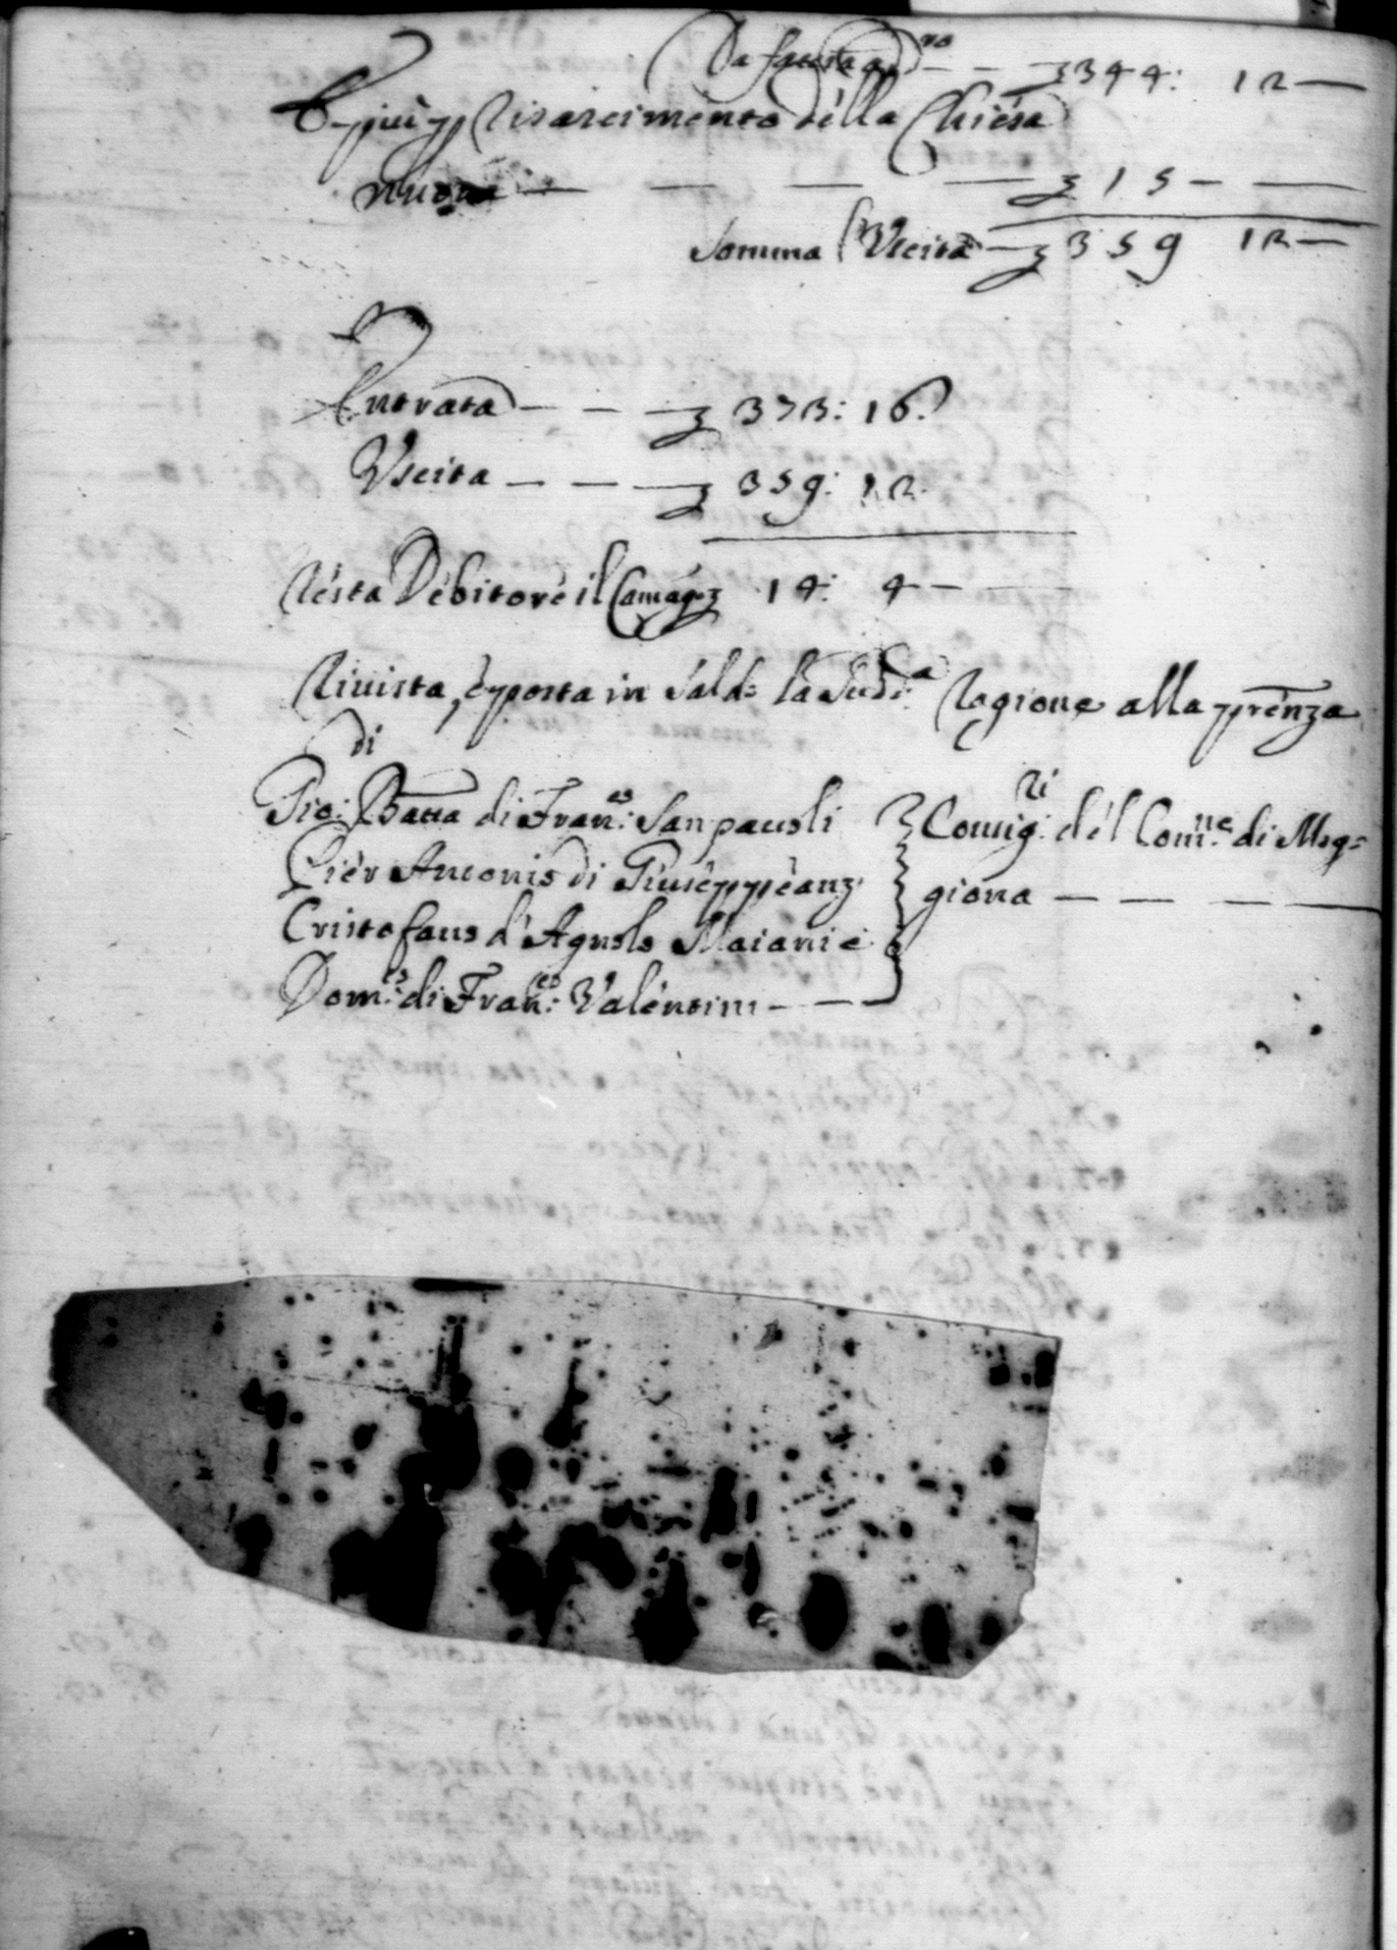 Da facciata — — ʒ 344: 12 —
E più p Risarcimento della Chiesa
nuova — — — — ʒ 15 — —
Somma l'Uscita — ʒ 359 12 —
Entrata — — — ʒ 373: 16.
Uscita — — — ʒ 359: 12.
Resta Debitore il Camarg: ʒ 14: 4 —
Rivista, e posta in Sald: la Sud:a Ragione alla prenza
di
Gio: Batta di Fran:co Sanpauoli } Consig:ri del Com:ne di Mog=
Pier Antonio di Giuseppe } giona — — — —
Cristofano d'Agnolo Maiani e }
Dom:co di Fran:co Valentini — — }